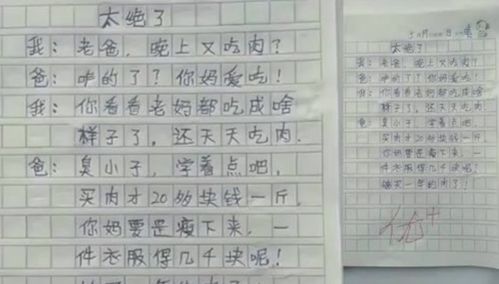 太绝了
我：老爸，晚上又吃肉？
爸：咋的了？你妈爱吃！
我：你看看老妈都吃成啥
样子了，还天天吃肉。
爸：臭小子，学着点吧，
买肉才20多块钱一斤，
你妈要是瘦下来，一
件衣服得几千块呢！
太绝了
我：老爸，晚上又吃肉？
爸：咋的了？你妈爱吃！
我：你看看老妈都吃成啥
样子了，还天天吃肉。
爸：臭小子，学着点吧，
买肉才20多块钱一斤，
你妈要是瘦下来，一
件衣服得几千块呢！
够买一年的肉了！
优+